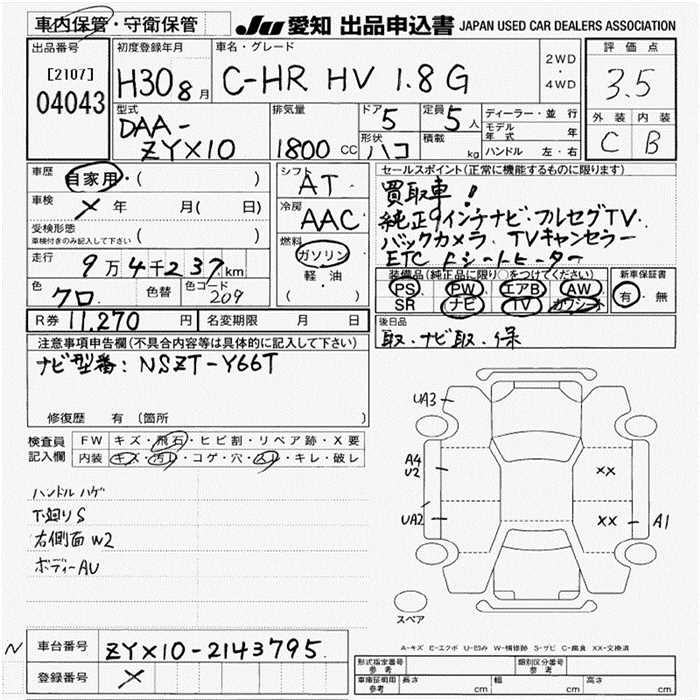 車内保管・守衛保管
JU 愛知 出品申込書 JAPAN USED CAR DEALERS ASSOCIATION
出品番号 初度登録年月 車名・グレード 2WD・4WD 評価点
[2107]
04043
H30 8月
C-HR HV 1.8G
3.5
型式 排気量 ドア 定員 ディーラー・並行 外装 内装
DAA-
ZYX10
1800 CC
5
5人
モデル年式 年
C B
形状 積載 ハンドル 左・右
ハコ kg
車歴 自家用・( )
シフト AT
セールスポイント(正常に機能するものに限ります)
買取車!
車検 メ 年 月( 日)
冷房 AAC
純正9インチナビ・フルセグTV.
受検形態
車検付きのみ記入して下さい ( )
燃料 ガソリン・軽・油 ( )
バックカメラ、TVキャンセラー
ETC Fシートヒーター
走行 9万4千237km
装備品(純正品に限り○をつけてください) 新車保証書
PS PW エアB AW 有・無
色 クロ 色替 色コード 209
SR ナビ TV カワシート
R券 11,270 円 名変期限 月 日
後日品
取・ナビ取・保
注意事項申告欄(不具合内容等は具体的に記入して下さい)
ナビ型番:NSZT-Y66T
修復歴 有 (箇所 )
検査員記入欄 FW キズ・飛石・ヒビ割・リペア跡・X要
内装 キズ・汚レ・コゲ・穴・スレ・キレ・破レ
ハンドルハゲ
下廻りS
右側面W2
ボディーAU
UA3
A4
U2
XX
UA2
XX
A1
スペア
A-キズ E-エクボ U-凹み W-補修跡 S-サビ C-腐食 XX-交換済
N 車台番号 ZYX10-2143795.
登録番号 メ
形式指定番号 参考 類別区分番号 参考
車庫証明用 参考 長さ cm 幅 cm 高さ cm